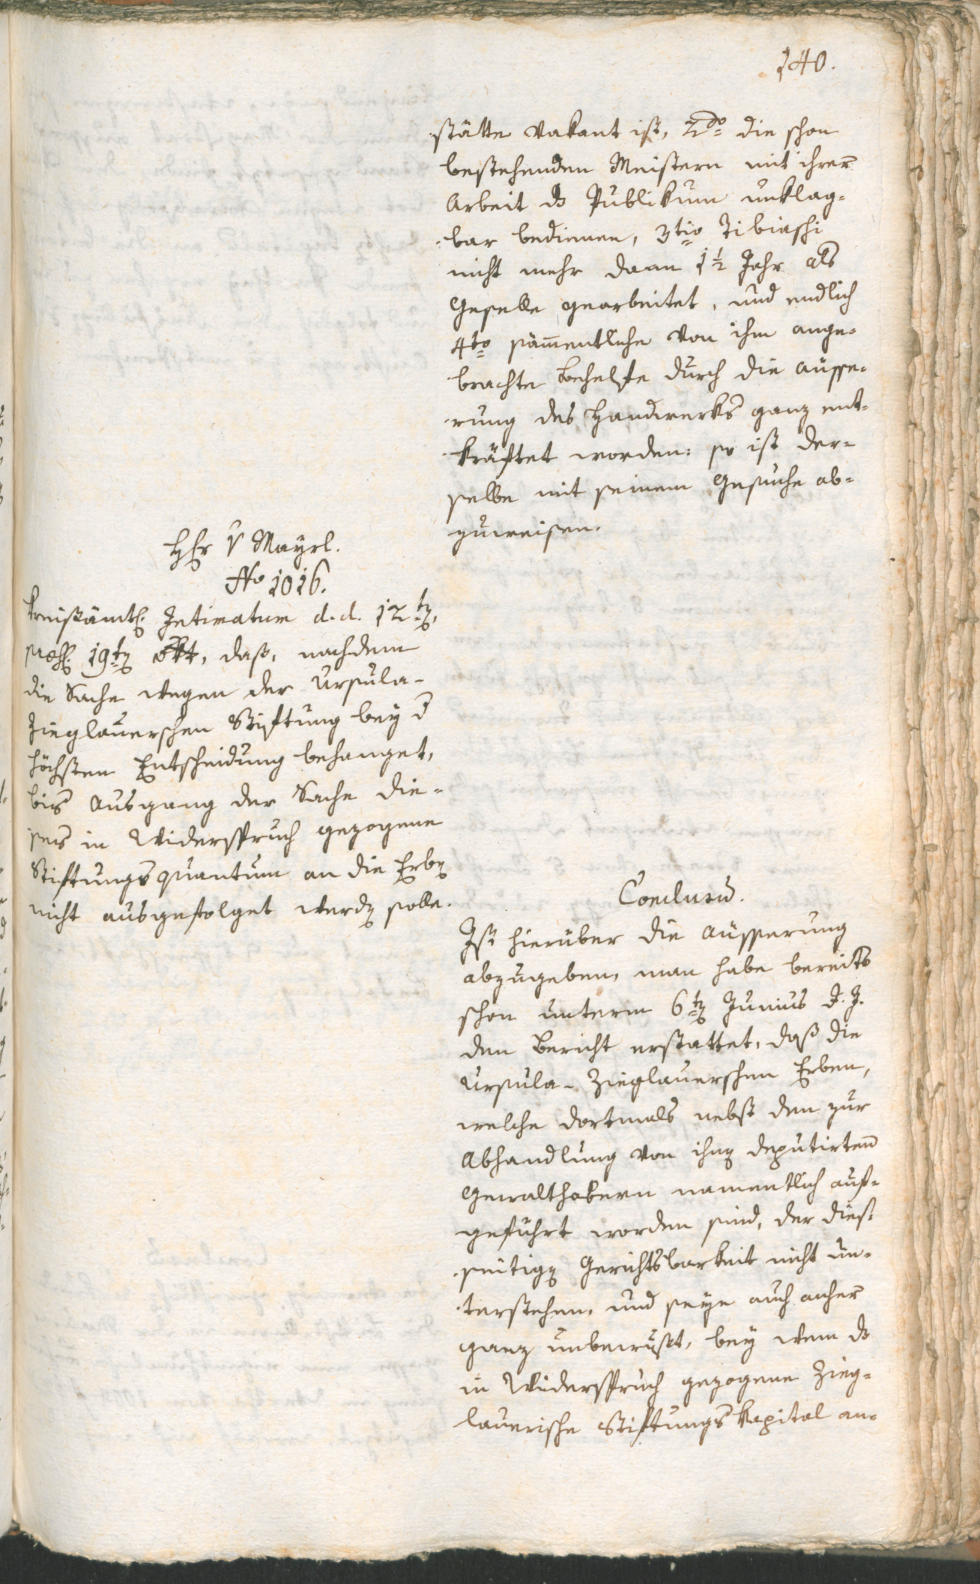 140.
stätte vakant ist, 2do die schon
bestehenden Meistern mit ihrer
Arbeit ds Publikum unklag-
bar bedienen, 3tio Tibiaschi
nicht mehr dann 1 1/2 Jahr als
Geselle gearbeitet, und endlich
4to sämmentliche von ihm ange-
brachte Behelfe durch die äusse-
rung des Handwerks ganz ent-
kräftet worden: so ist der-
selbe mit seinem Gesuche ab-
zuweisen.
Hr v Mayrl.
No 1016.
Kreisämtl. Intimatum d. d. 12ten,
praes. 19ten Okt, daß, nachdem
die Sache wegen der Ursula-
Zieglauerschen Stiftung bey d
höchsten Entscheidung behanget,
bis Ausgang der Sache die-
ses in Widerspruch gezogene
Stiftungsquantum an die Erben
nicht ausgefolget werden solle.
Conclusum.
Ist hierüber die äusserung
abzugeben, man habe bereits
schon unterm 6ten Junius d. J.
den Bericht erstattet, daß die
Ursula-Zieglauerschen Erben,
welche dortmals nebst den zur
Abhandlung von ihnen deputirten
Gewalthabern namentlich auf-
geführt worden sind, der dies-
seitigen Gerichtsbarkeit nicht un-
terstehen, und seye auch anher
ganz unbewust, bey wem ds
in Widerspruch gezogene Zieg-
lauerische Stiftungskapital an-